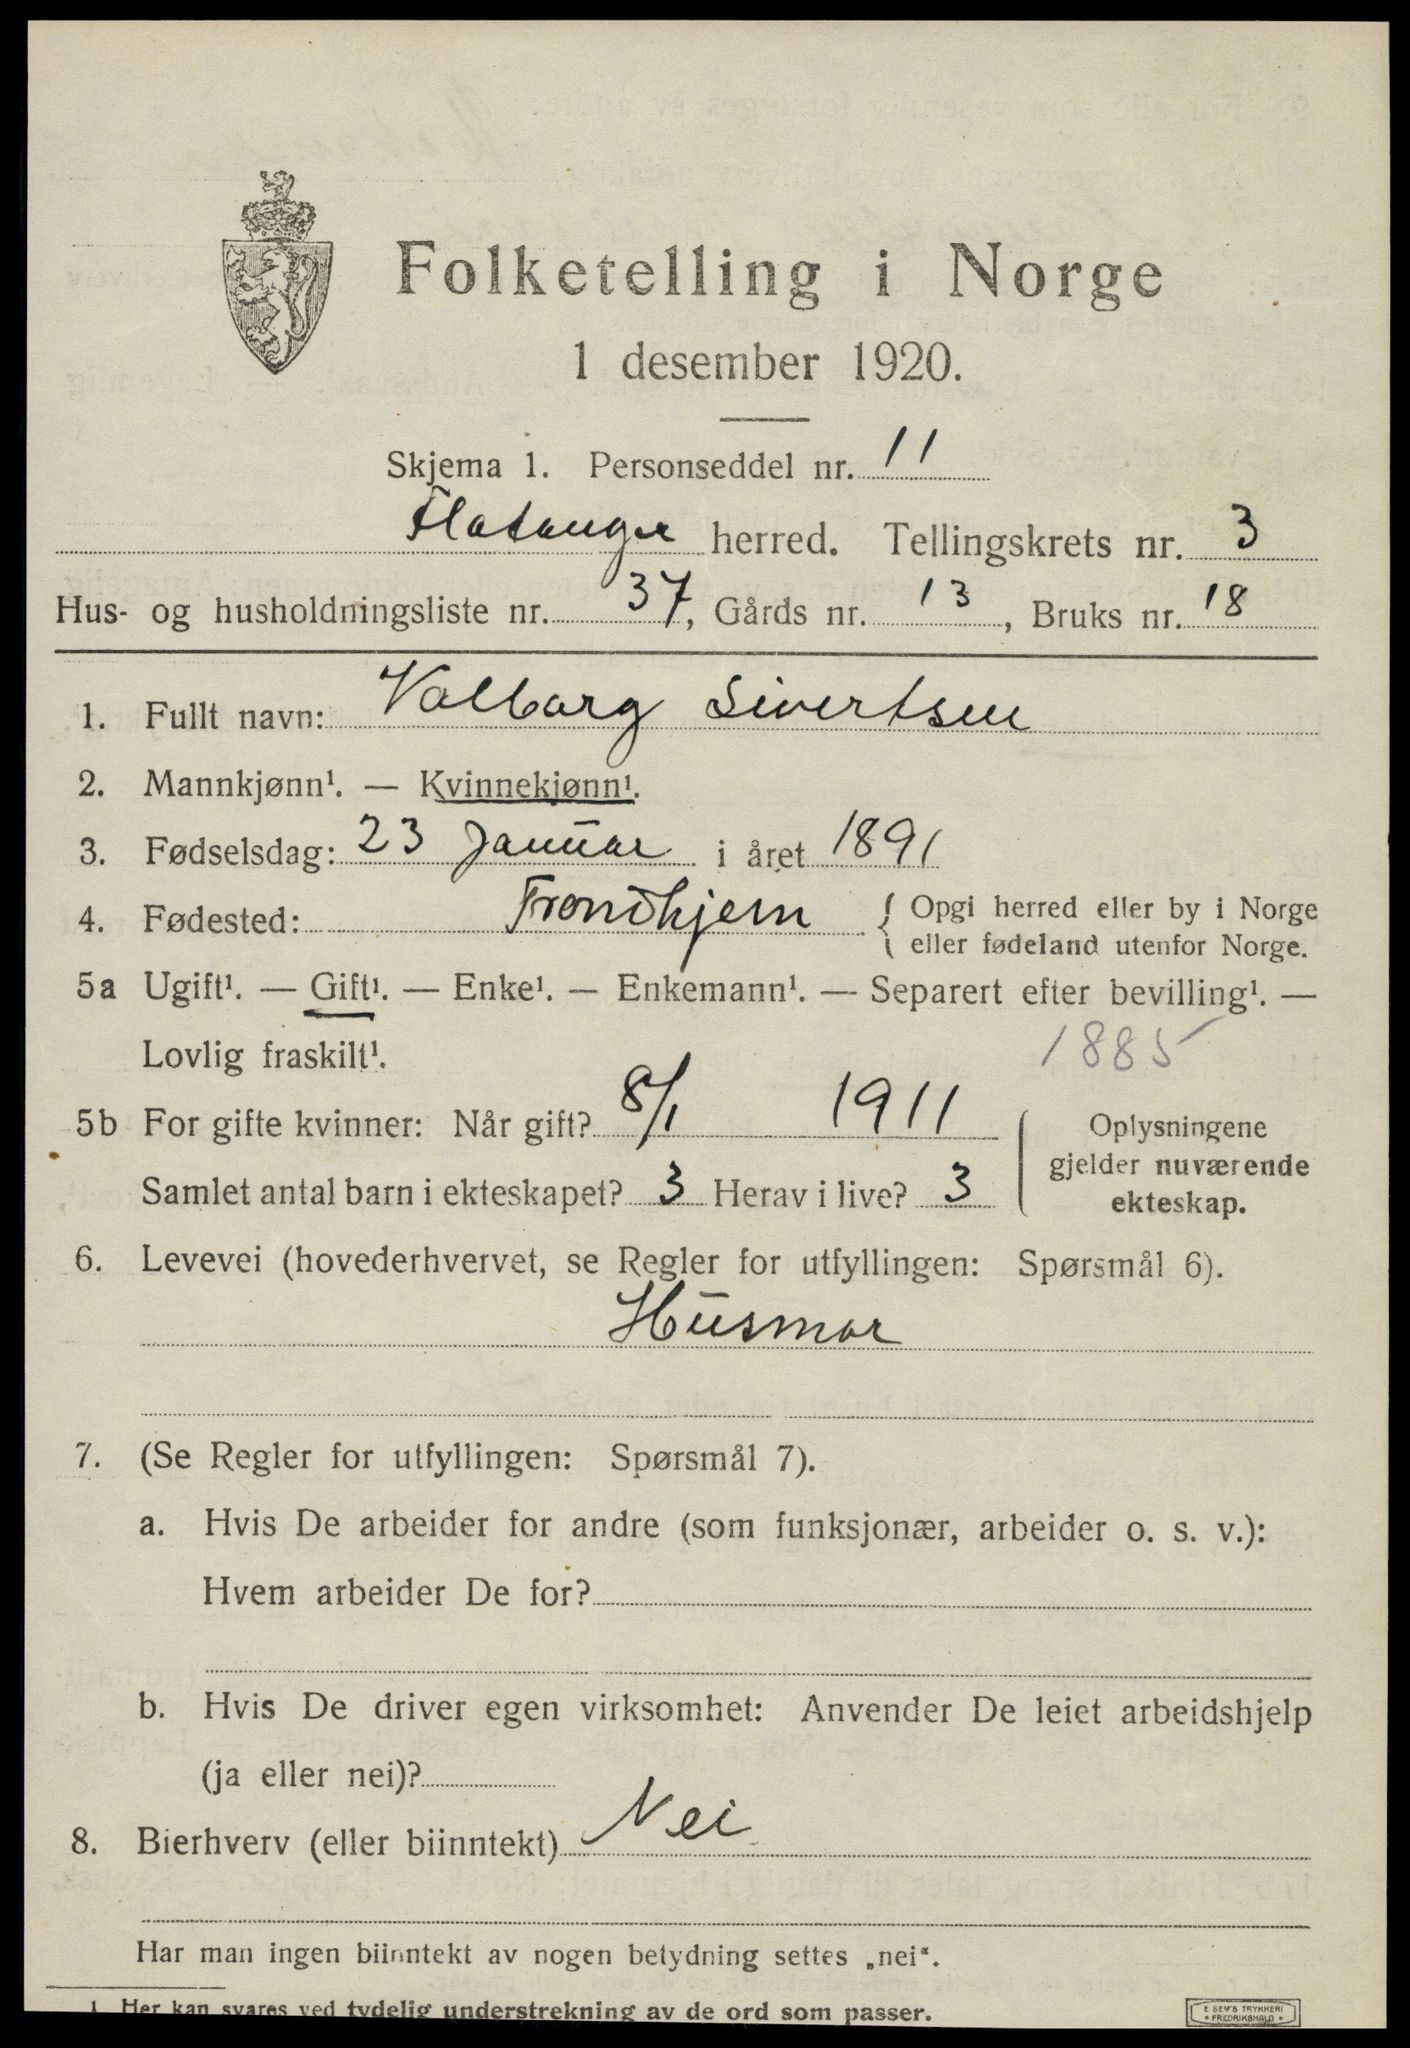 Folketelling i Norge
1 desember 1920.
Skjema 1. Personseddel nr. 11
Flatanger herred. Tellingskrets nr. 3
Hus- og husholdningsliste nr. 37, Gårds nr. 13, Bruks nr. 18
1. Fullt navn: Valborg Sivertsen
2. Mannkjønn¹. — Kvinnekjønn¹.
3. Fødselsdag: 23 Januar i året 1891
4. Fødested: Trondhjem { Opgi herred eller by i Norge
eller fødeland utenfor Norge.
5a Ugift¹. — Gift¹. — Enke¹. — Enkemann¹. — Separert efter bevilling¹. —
Lovlig fraskilt¹. 1885
5b For gifte kvinner: Når gift? 8/1 1911
Samlet antal barn i ekteskapet? 3 Herav i live? 3
Oplysningene
gjelder nuværende
ekteskap.
6. Levevei (hovederhvervet, se Regler for utfyllingen: Spørsmål 6).
Husmor
7. (Se Regler for utfyllingen: Spørsmål 7).
a. Hvis De arbeider for andre (som funksjonær, arbeider o. s. v.):
Hvem arbeider De for?
b. Hvis De driver egen virksomhet: Anvender De leiet arbeidshjelp
(ja eller nei)?
8. Bierhverv (eller biinntekt) Nei
Har man ingen biinntekt av nogen betydning settes „nei“.
1 Her kan svares ved tydelig understrekning av de ord som passer.
E SEM'S TRYKKERI
• FREDRIKSHALD •